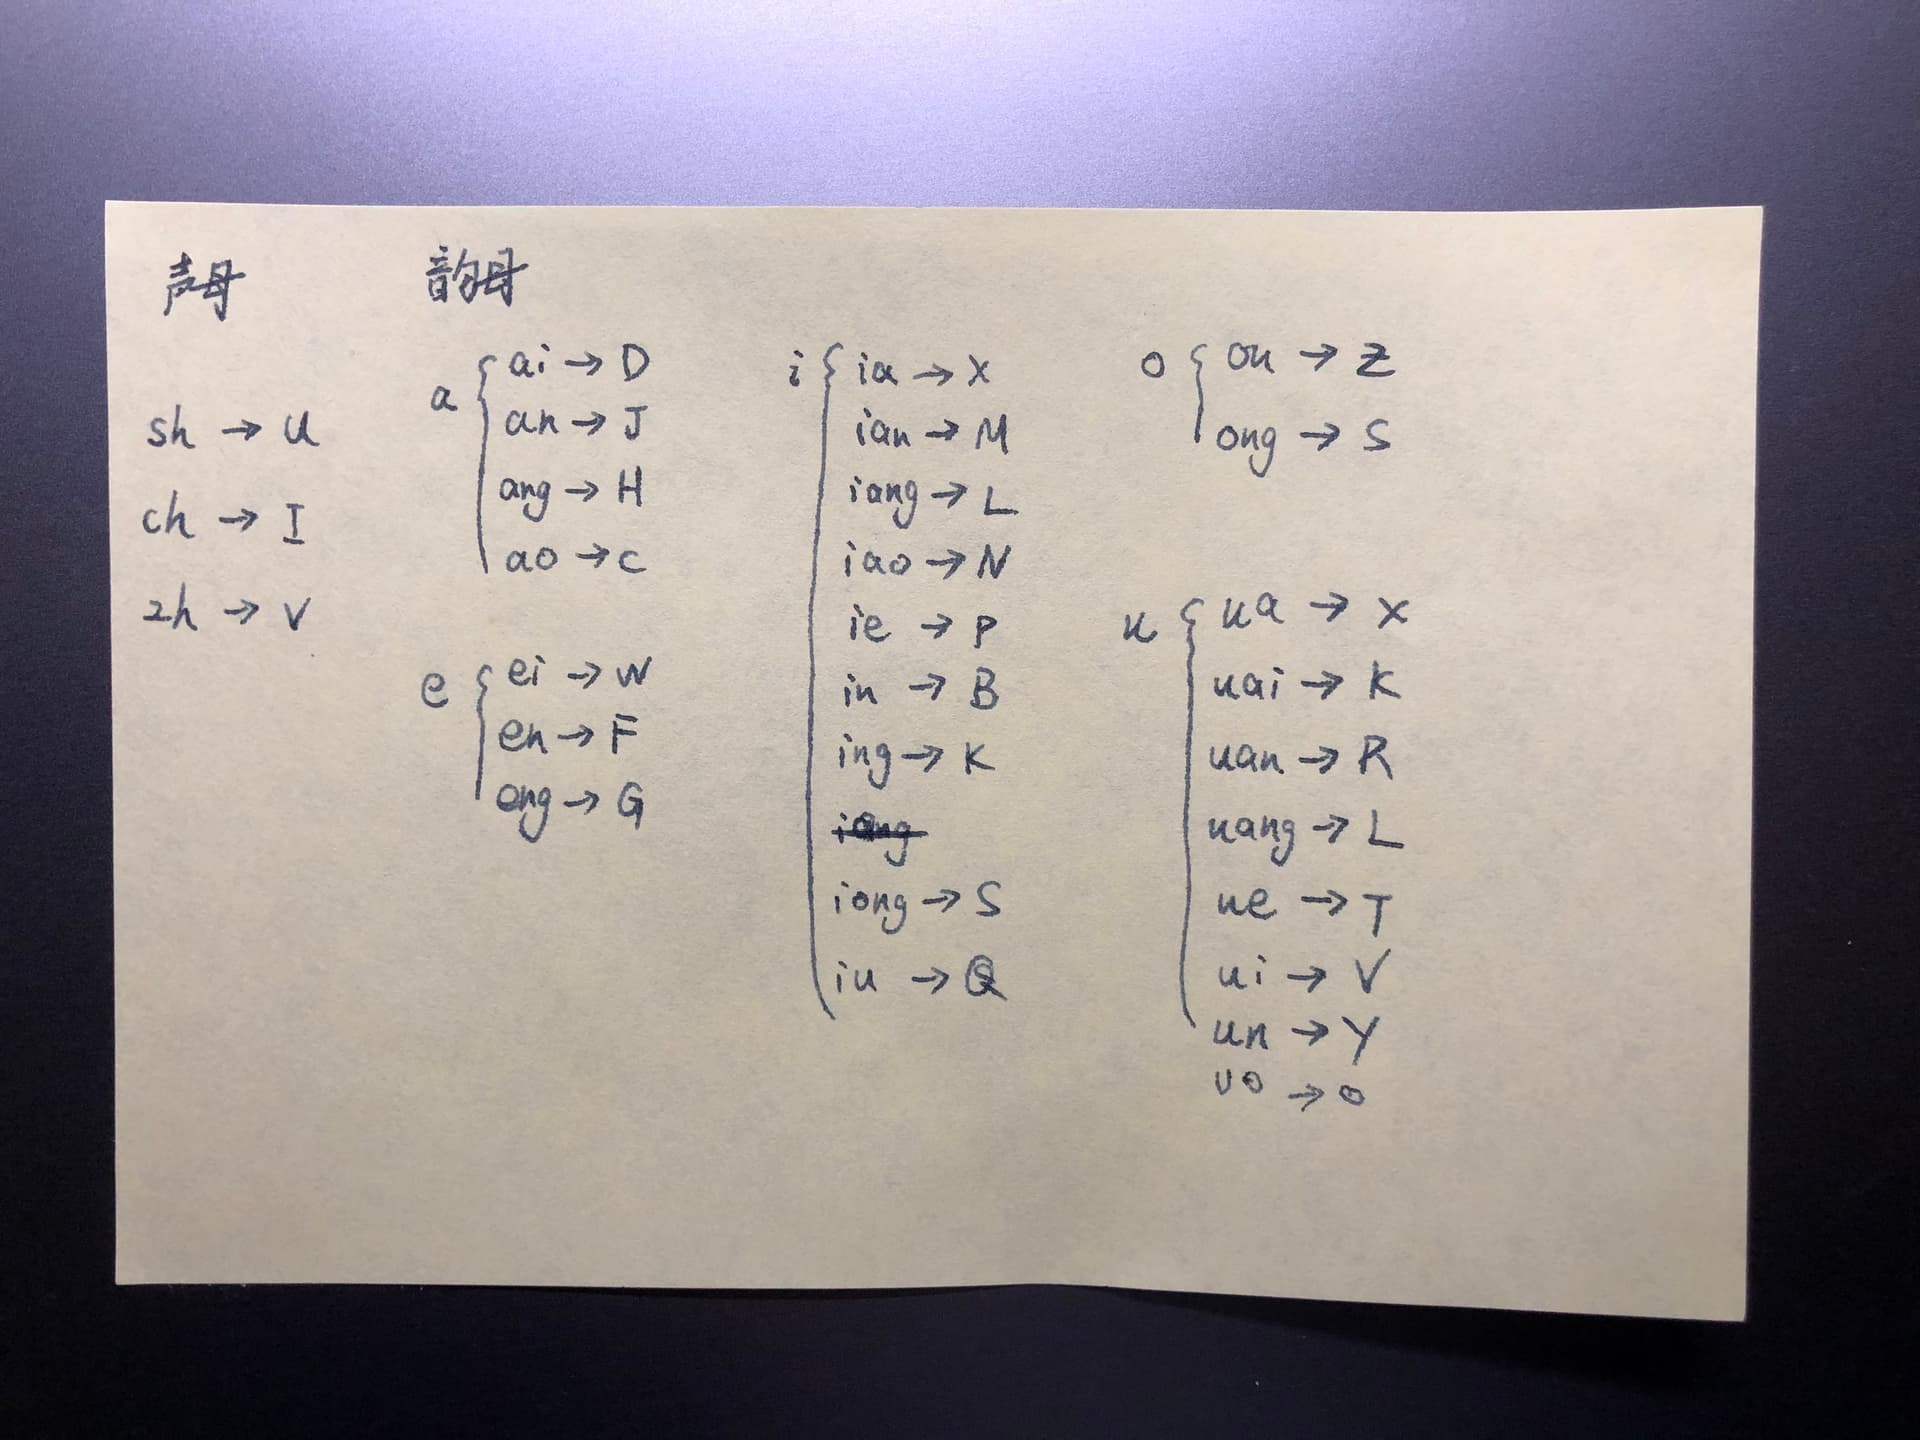 声母
sh → U
ch → I
zh → V
韵母
a
ai → D
an → J
ang → H
ao → C
e
ei → W
en → F
eng → G
i
ia → X
ian → M
iang → L
iao → N
ie → P
in → B
ing → K
iang
iong → S
iu → Q
o
ou → Z
ong → S
u
ua → X
uai → K
uan → R
uang → L
ue → T
ui → V
un → Y
uo → o